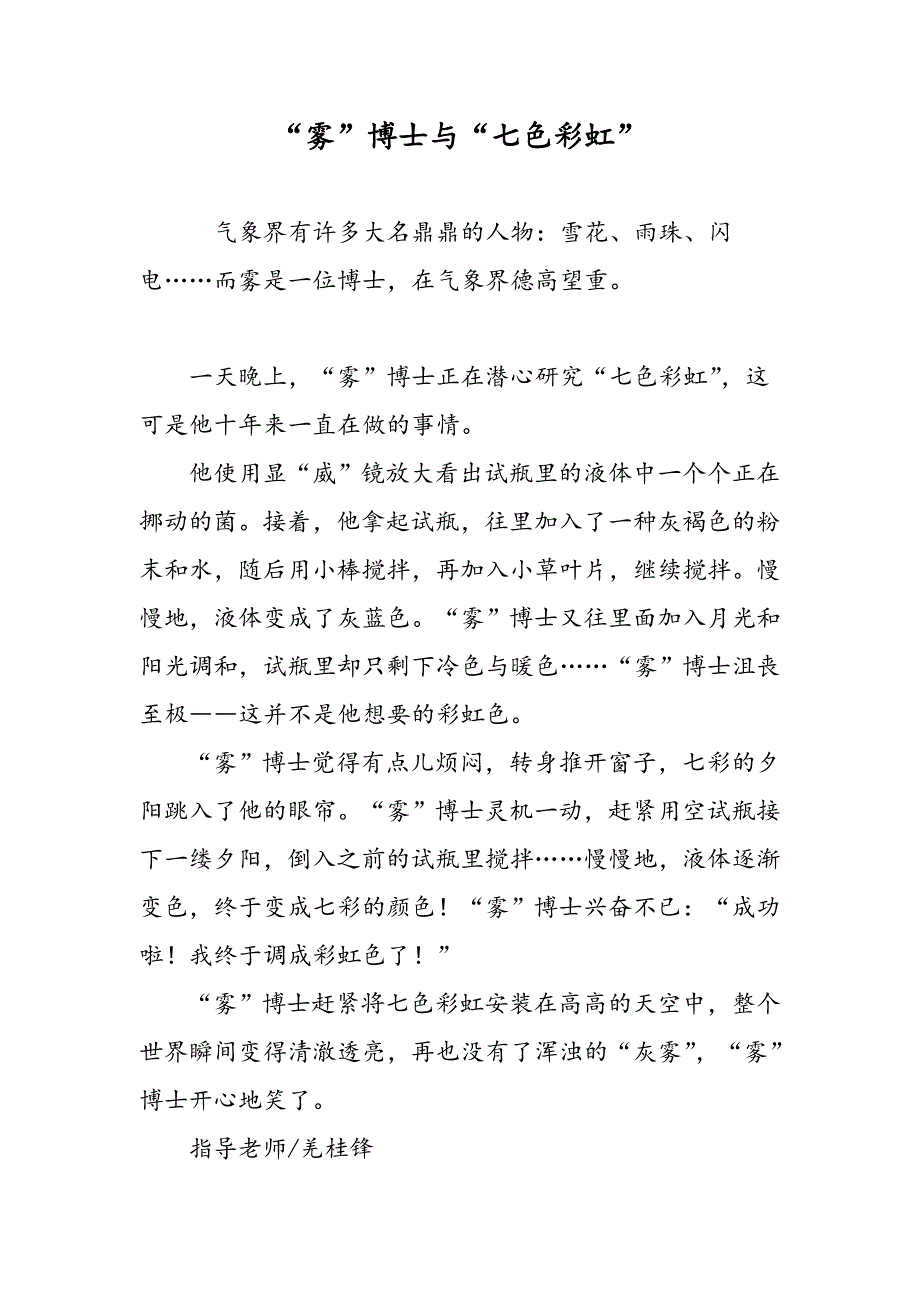 “雾”博士与“七色彩虹”
气象界有许多大名鼎鼎的人物：雪花、雨珠、闪
电……而雾是一位博士，在气象界德高望重。
一天晚上，“雾”博士正在潜心研究“七色彩虹”，这
可是他十年来一直在做的事情。
他使用显“威”镜放大看出试瓶里的液体中一个个正在
挪动的菌。接着，他拿起试瓶，往里加入了一种灰褐色的粉
末和水，随后用小棒搅拌，再加入小草叶片，继续搅拌。慢
慢地，液体变成了灰蓝色。“雾”博士又往里面加入月光和
阳光调和，试瓶里却只剩下冷色与暖色……“雾”博士沮丧
至极——这并不是他想要的彩虹色。
“雾”博士觉得有点儿烦闷，转身推开窗子，七彩的夕
阳跳入了他的眼帘。“雾”博士灵机一动，赶紧用空试瓶接
下一缕夕阳，倒入之前的试瓶里搅拌……慢慢地，液体逐渐
变色，终于变成七彩的颜色！“雾”博士兴奋不已：“成功
啦！我终于调成彩虹色了！”
“雾”博士赶紧将七色彩虹安装在高高的天空中，整个
世界瞬间变得清澈透亮，再也没有了浑浊的“灰雾”，“雾”
博士开心地笑了。
指导老师/羌桂锋